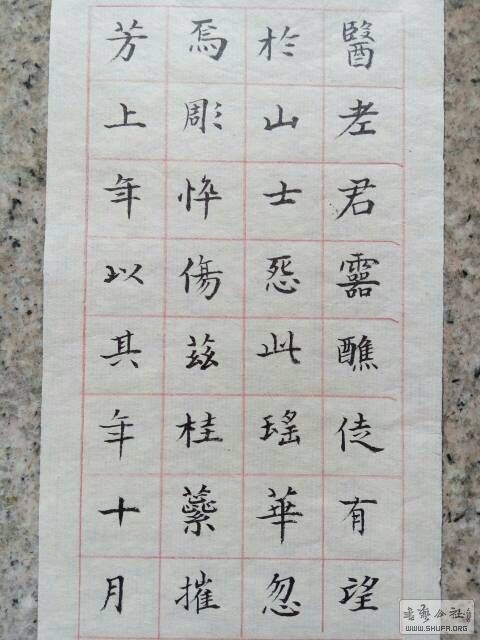 醫老君靈醮徒有望
於山士怨此瑤華忽
焉彫忰傷茲桂蘂摧
芳上年以其年十月
书艺公社
WWW.SHUFA.ORG